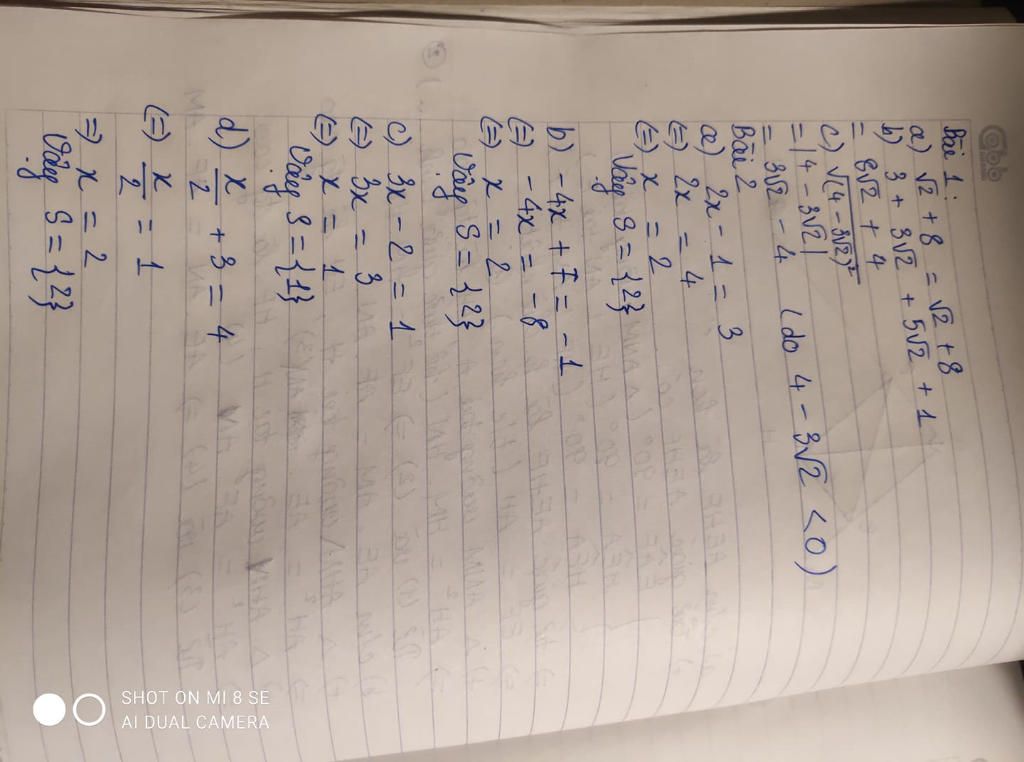 Bài 1:
a) √2 + 8 = √2 + 8
b) 3 + 3√2 + 5√2 + 1
= 8√2 + 4
c) √(4 - 3√2)²
= |4 - 3√2|
= 3√2 - 4 (do 4 - 3√2 < 0)
Bài 2
a) 2x - 1 = 3
(=) 2x = 4
(=) x = 2
Vậy S = {2}
b) -4x + 7 = -1
(=) -4x = -8
(=) x = 2
Vậy S = {2}
c) 3x - 2 = 1
(=) 3x = 3
(=) x = 1
Vậy S = {1}
d) x/2 + 3 = 4
(=) x/2 = 1
=) x = 2
Vậy S = {2}
SHOT ON MI 8 SE
AI DUAL CAMERA